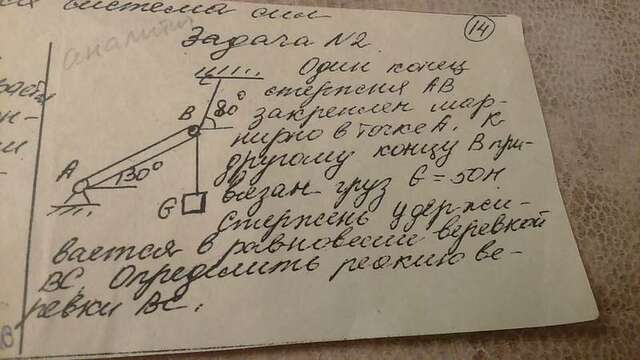 система сил
14
аналитич
Задача №2.
Один конец
стержня АВ
закреплен шар-
нирно в точке А. К
другому концу В при-
вязан груз G = 50Н
стержень удержи-
вается в равновесии веревкой
ВС. Определить реакцию ве-
ревки ВС.
В
80°
А
30°
G